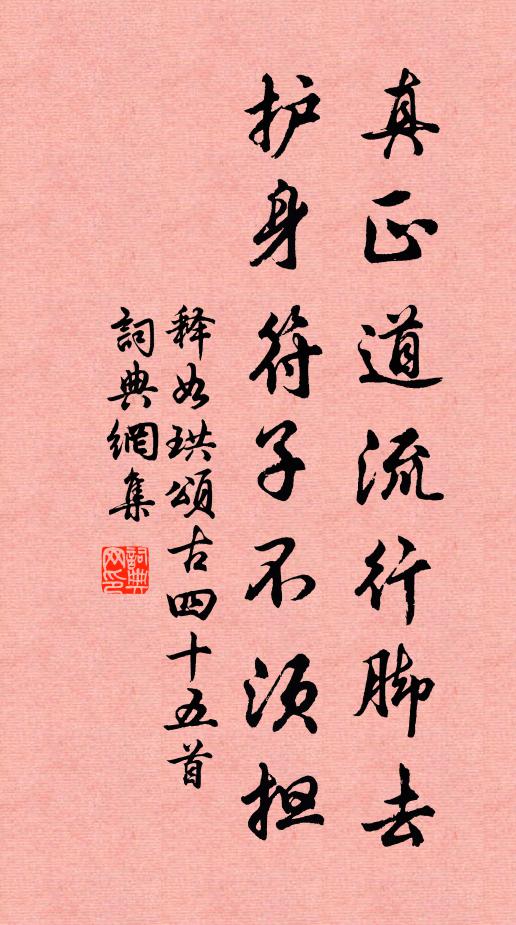 真正道流行脚去
护身符子不须担
释如珙颂古四十五首
詞典網集
詞典网印